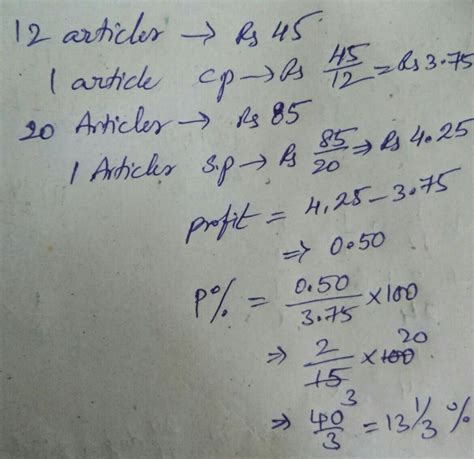 12 articles → Rs 45
1 article cp → Rs 45/12 = Rs 3.75
20 Articles → Rs 85
1 Articles s.p → Rs 85/20 ⇒ Rs 4.25
profit = 4.25 - 3.75
⇒ 0.50
P% = 0.50/3.75 × 100
⇒ 2/15 × 100 20
3
⇒ 40/3 = 13 1/3 %